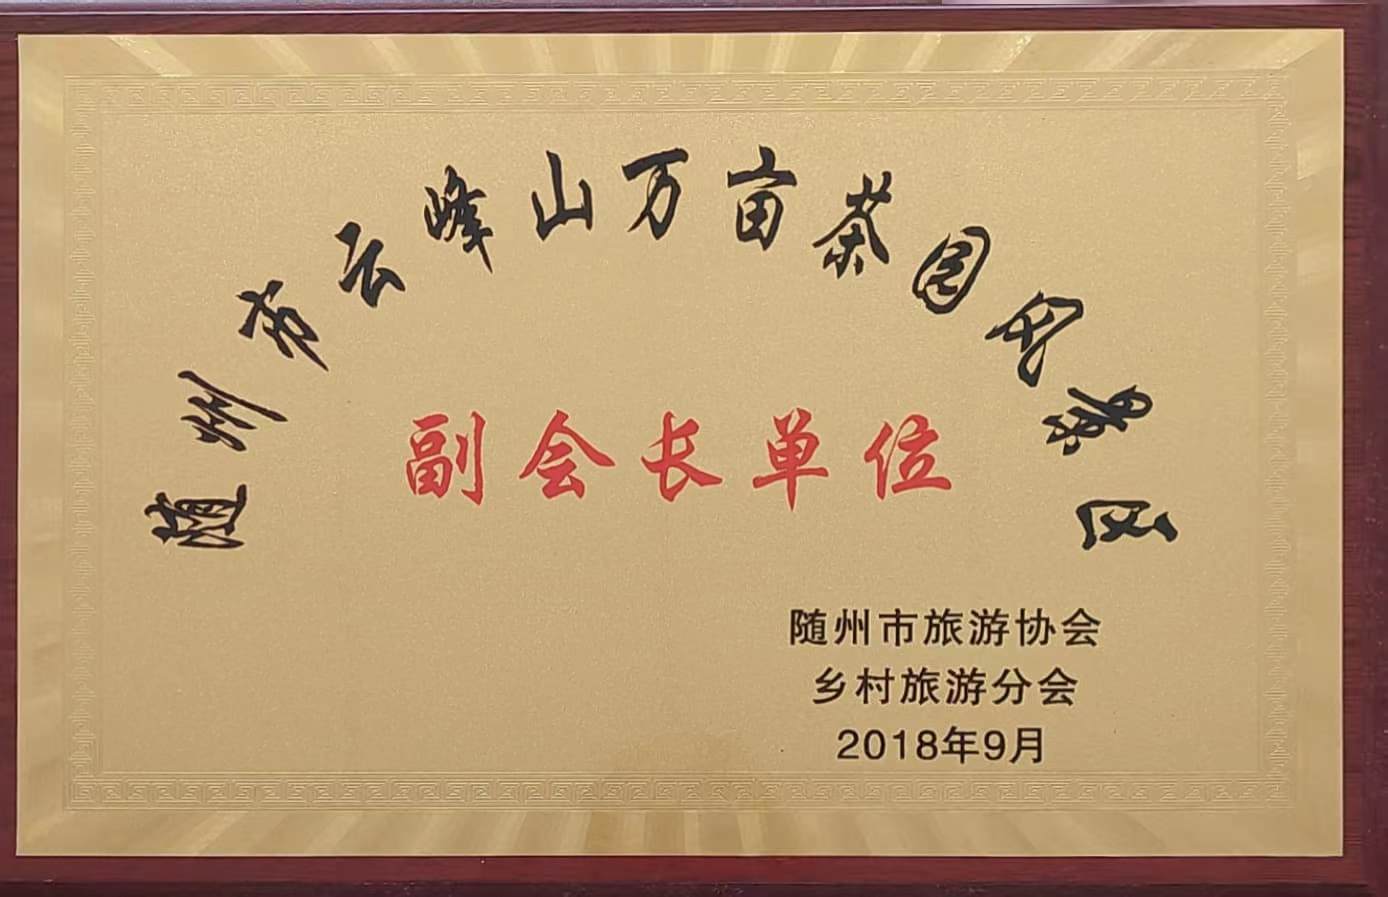 随州市云峰山万亩茶园风景区
副会长单位
随州市旅游协会
乡村旅游分会
2018年9月